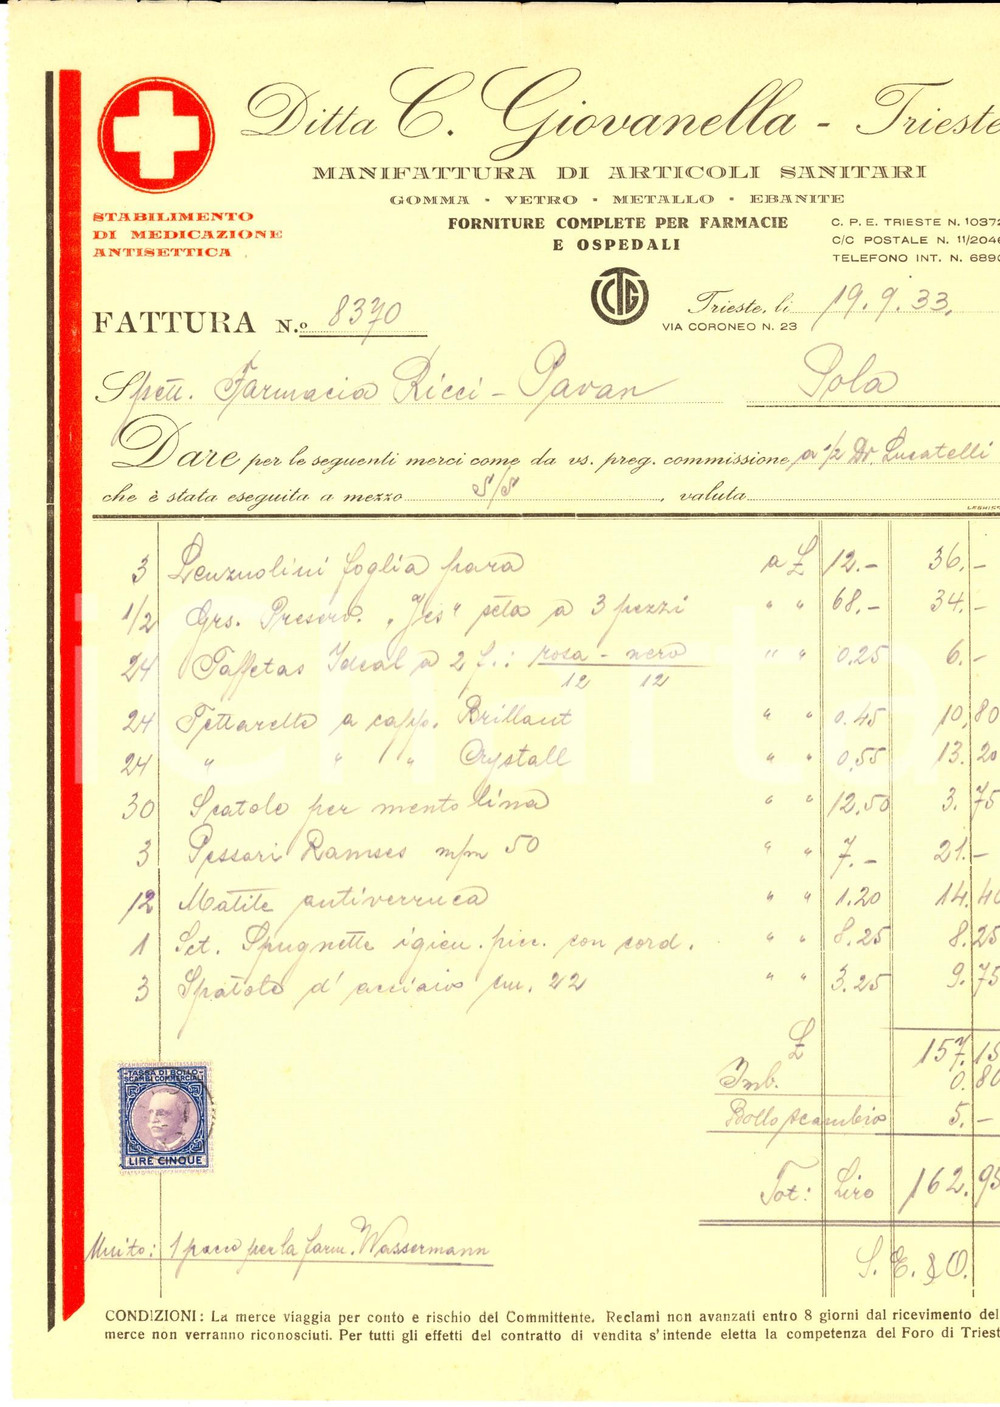 Ditta C. Giovanella - Trieste
MANIFATTURA DI ARTICOLI SANITARI
GOMMA - VETRO - METALLO - EBANITE
FORNITURE COMPLETE PER FARMACIE
E OSPEDALI
C. P. E. TRIESTE N. 10372
C/C POSTALE N. 11/2046
TELEFONO INT. N. 6890
STABILIMENTO
DI MEDICAZIONE
ANTISETTICA
CTG
FATTURA N.o 8370
Trieste, li 19.9.33.
VIA CORONEO N. 23
Spett. Farmacia Ricci - Pavan Pola
Dare per le seguenti merci come da vs. preg. commissione a 1/2 Dr. Lucatelli
che è stata eseguita a mezzo S/S, valuta
3 Lenzuolini foglia para a £ 12.- 36.-
1/2 Grs. Preserv. „Yes" seta a 3 pezzi " " 68.- 34.-
24 Taffetas Ideal a 2 f.: rosa - nero " " 0.25 6.-
12 12
24 Tettarelle a capp. Brillant " " 0.45 10,80
24 " " " Crystall " " 0,55 13.20
30 Scatole per mentolina " " 12.50 3.75
3 Pessari Ramses m/m 50 " " 7.- 21.-
12 Matite antiverruca " " 1.20 14.40
1 Sct. Spugnette igien. picc. con cord. " " 8.25 8.25
3 Spatole d'acciaio cm. 22 " " 3.25 9.75
£ 157.15
Imb. 0.80
Bollo scambio 5.-
Tot: Lire 162.95
TASSA DI BOLLO
SCAMBI COMMERCIALI
LIRE CINQUE
Unito: 1 pacco per la farm. Wassermann
S. E. & O.
CONDIZIONI: La merce viaggia per conto e rischio del Committente. Reclami non avanzati entro 8 giorni dal ricevimento del
merce non verranno riconosciuti. Per tutti gli effetti del contratto di vendita s'intende eletta la competenza del Foro di Triest